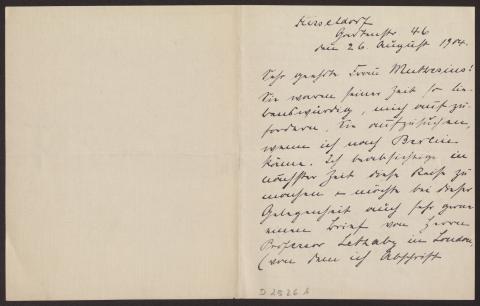 Düsseldorf
Gartenstr 46
den 26. August 1904.
Sehr geehrte Frau Muthesius!
Sie waren seiner Zeit so lie-
benswürdig, mich aufzu-
fordern, Sie aufzusuchen,
wenn ich nach Berlin
käme. Ich beabsichtige in
nächster Zeit diese Reise zu
machen & möchte bei dieser
Gelegenheit auch sehr gern
einen Brief von Herrn
Professor Lethaby in London,
(von dem ich Abschrift
D 2826 b